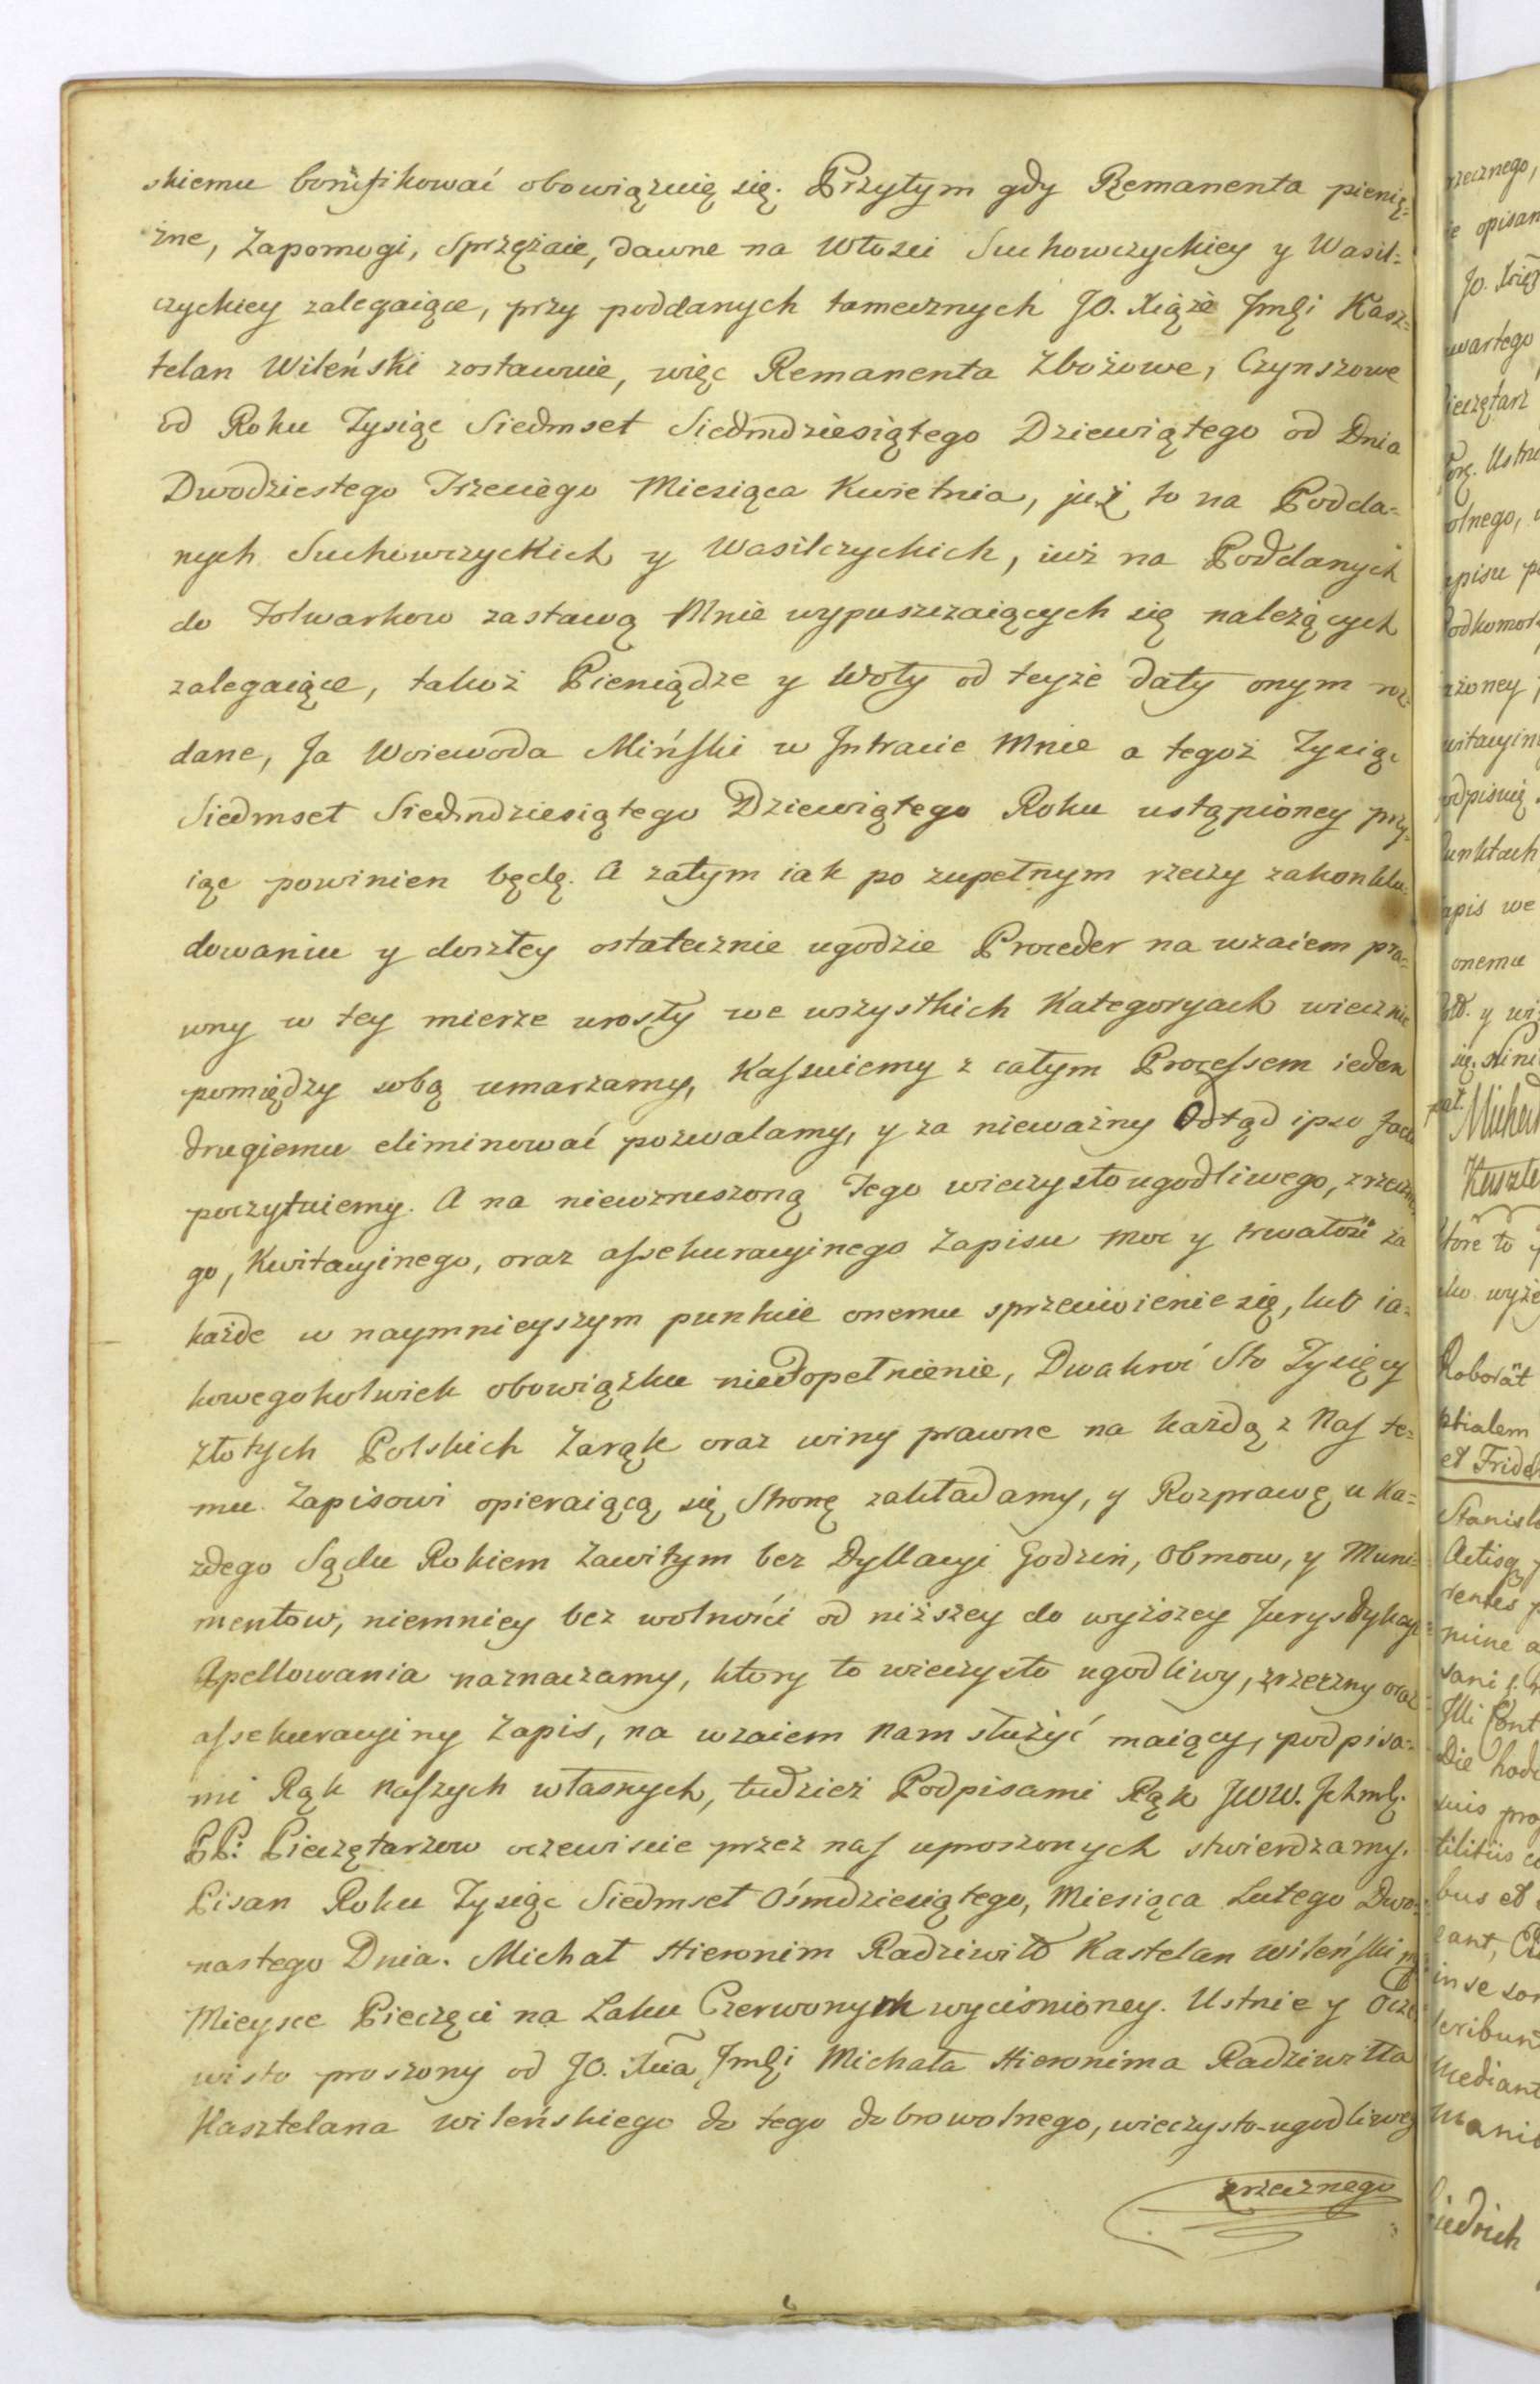 skiemu bonifikować obowiązuię się. Przytym gdy Remanenta pienię=
żne, Zapomogi, Sprzężaie, dawne na Włości Suchowczyckiey y Wasil=
czyckiey zalegaiące, przy poddanych tamecznych JO. Xiąże Jmći Kasz=
telan Wileński zostawuie, więc Remanenta Zbożowe, Czynszowe
od Roku Tysiąc Siedmset Siedmdziesiątego Dziewiątego od Dnia
Dwodziestego Trzeciego Miesiąca Kwietnia, już to na Podda=
nych Suchowczyckich y Wasilczyckich, iuż na Poddanych
do Folwarkow zastawą Mnie wypuszczaiących się należących
zalegaiące, takoż Pieniądze y Woły od teyże daty onym roz=
dane, Ja Woiewoda Miński w Intracie Mnie a tegoż Tysiąc
Siedmset Siedmdziesiątego Dziewiątego Roku ustąpioney przy=
iąc powinien będę. A zatym iak po zupełnym rzeczy zakonklu=
dowaniu y doszłey ostatecznie ugodzie Proceder na wzaiem pra=
wny w tey mierze urosły we wszystkich Kategoryach wiecznie
pomiędzy sobą umarzamy, Kassuiemy z całym Processem ieden
drugiemu eliminować pozwalamy, y za nieważny Odtąd ipso facto
poczytuiemy. A na niewzruszoną Tego wieczysto ugodliwego, zrzeczne=
go, Kwitacyinego, oraz assekuracyinego Zapisu moc y trwałość za
każde w naymnieyszym punkcie onemu sprzeciwienie się, lub ia=
kowegokolwiek obowiązku niedopełnienie, Dwakroć Sto Tysięcy
Złotych Polskich Zaręk oraz winy prawne na każdą z Nas te=
mu Zapisowi opieraiącą się Stronę zakładamy, y Rozprawę u Ka=
żdego Sądu Rokiem Zawitym bez Dyllacyi Godzin, Obmow, y Muni=
mentow, niemniey bez wolności od niższey do wyższey Jurysdykcyi
Apellowania naznaczamy, ktory to wieczysto ugodliwy, zrzeczny oraz
assekuracyiny Zapis, na wzaiem Nam służyć maiący, podpisa=
mi Rąk Naszych własnych, tudzież Podpisami Rąk JWW. Ichmć.
PP: Pieczętarzow oczewiscie przez nas uproszonych stwierdzamy.
Pisan Roku Tysiąc Siedmset Ośmdziesiątego, Miesiąca Lutego Dwo=
nastego Dnia. Michał Hieronim Radziwiłł Kastelan Wileński mp
Mieysce Pieczęci na Laku Czerwonym wycisnioney. Ustnie y Ocze=
wisto proszony od JO. Xcia Jmći Michała Hieronima Radziwiłła
Kasztelana wileńskiego do tego dobrowolnego, wieczysto-ugodliwego
zrzecznego